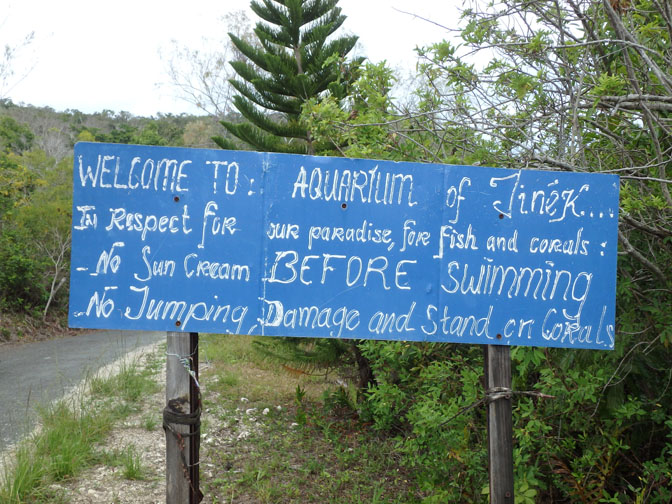 WELCOME TO: AQUARIUM of Jinék...
In Respect for our paradise, for fish and corals:
- No Sun Cream BEFORE swimming
- No Jumping, Damage and Stand on Corals